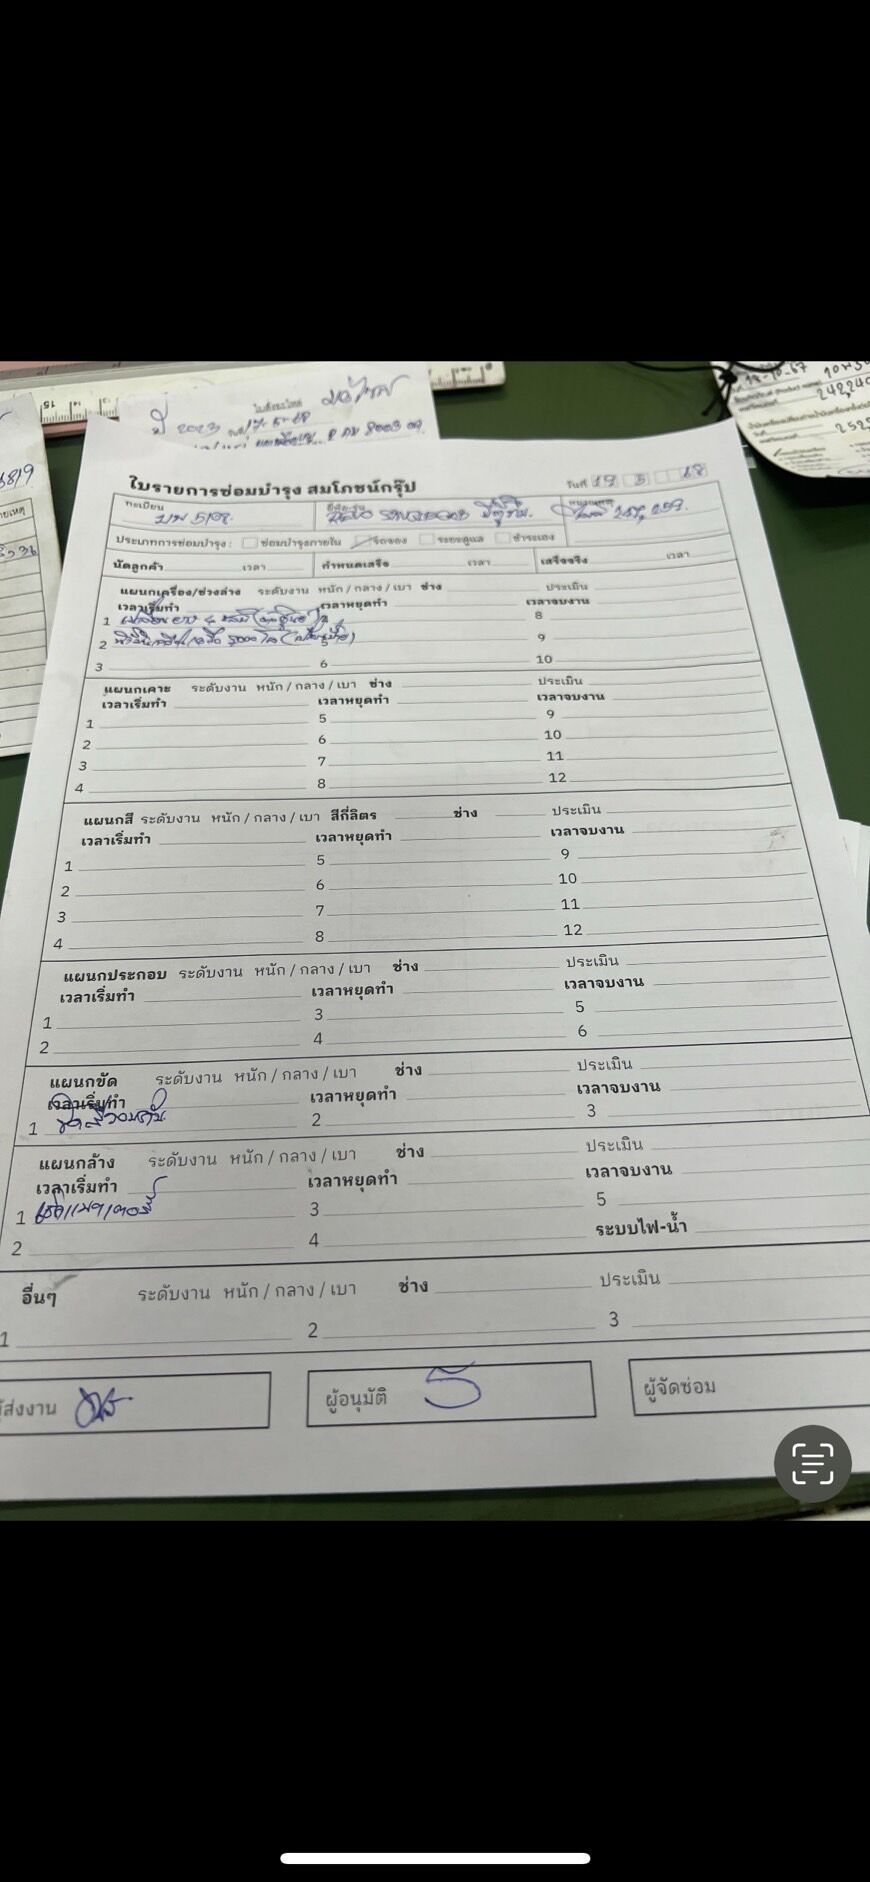 15
ปี 2023
ใบรายการซ่อมบำรุง สมโภชน์กรุ๊ป
วันที่ 19 5 68
ทะเบียน
ยี่ห้อ-รุ่น
หมายเหตุ
ประเภทการซ่อมบำรุง : ซ่อมบำรุงภายใน รถจอง ระยะดูแล ชำระเอง
นัดลูกค้า เวลา กำหนดเสร็จ เวลา เสร็จจริง เวลา
แผนกเครื่อง/ช่วงล่าง ระดับงาน หนัก / กลาง / เบา ช่าง ประเมิน
เวลาเริ่มทำ เวลาหยุดทำ เวลาจบงาน
1 เปลี่ยนยาง 4 8
2 5000 9
3 6 10
แผนกเคาะ ระดับงาน หนัก / กลาง / เบา ช่าง ประเมิน
เวลาเริ่มทำ เวลาหยุดทำ เวลาจบงาน
1 5 9
2 6 10
3 7 11
4 8 12
แผนกสี ระดับงาน หนัก / กลาง / เบา สีกี่ลิตร ช่าง ประเมิน
เวลาเริ่มทำ เวลาหยุดทำ เวลาจบงาน
1 5 9
2 6 10
3 7 11
4 8 12
แผนกประกอบ ระดับงาน หนัก / กลาง / เบา ช่าง ประเมิน
เวลาเริ่มทำ เวลาหยุดทำ เวลาจบงาน
1 3 5
2 4 6
แผนกขัด ระดับงาน หนัก / กลาง / เบา ช่าง ประเมิน
เวลาเริ่มทำ เวลาหยุดทำ เวลาจบงาน
1 ขัดสีรอบคัน 2 3
แผนกล้าง ระดับงาน หนัก / กลาง / เบา ช่าง ประเมิน
เวลาเริ่มทำ เวลาหยุดทำ เวลาจบงาน
1 3 5
2 4 ระบบไฟ-น้ำ
อื่นๆ ระดับงาน หนัก / กลาง / เบา ช่าง ประเมิน
1 2 3
ผู้ส่งงาน ผู้อนุมัติ ผู้จัดซ่อม